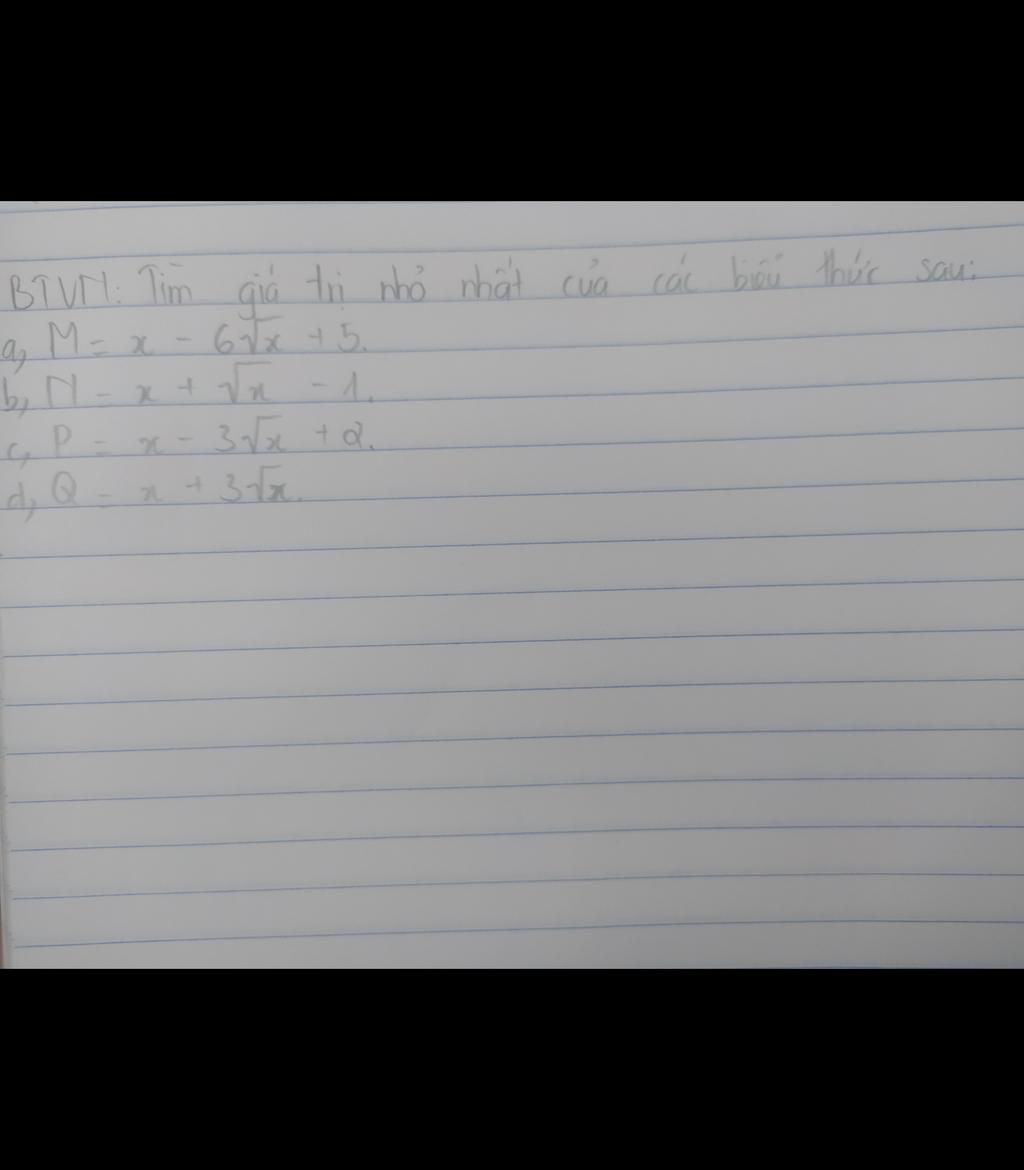 BTVN: Tìm giá trị nhỏ nhất của các biểu thức sau:
a, M = x - 6√x + 5.
b, N = x + √x - 1.
c, P = x - 3√x + 2.
d, Q = x + 3√x.